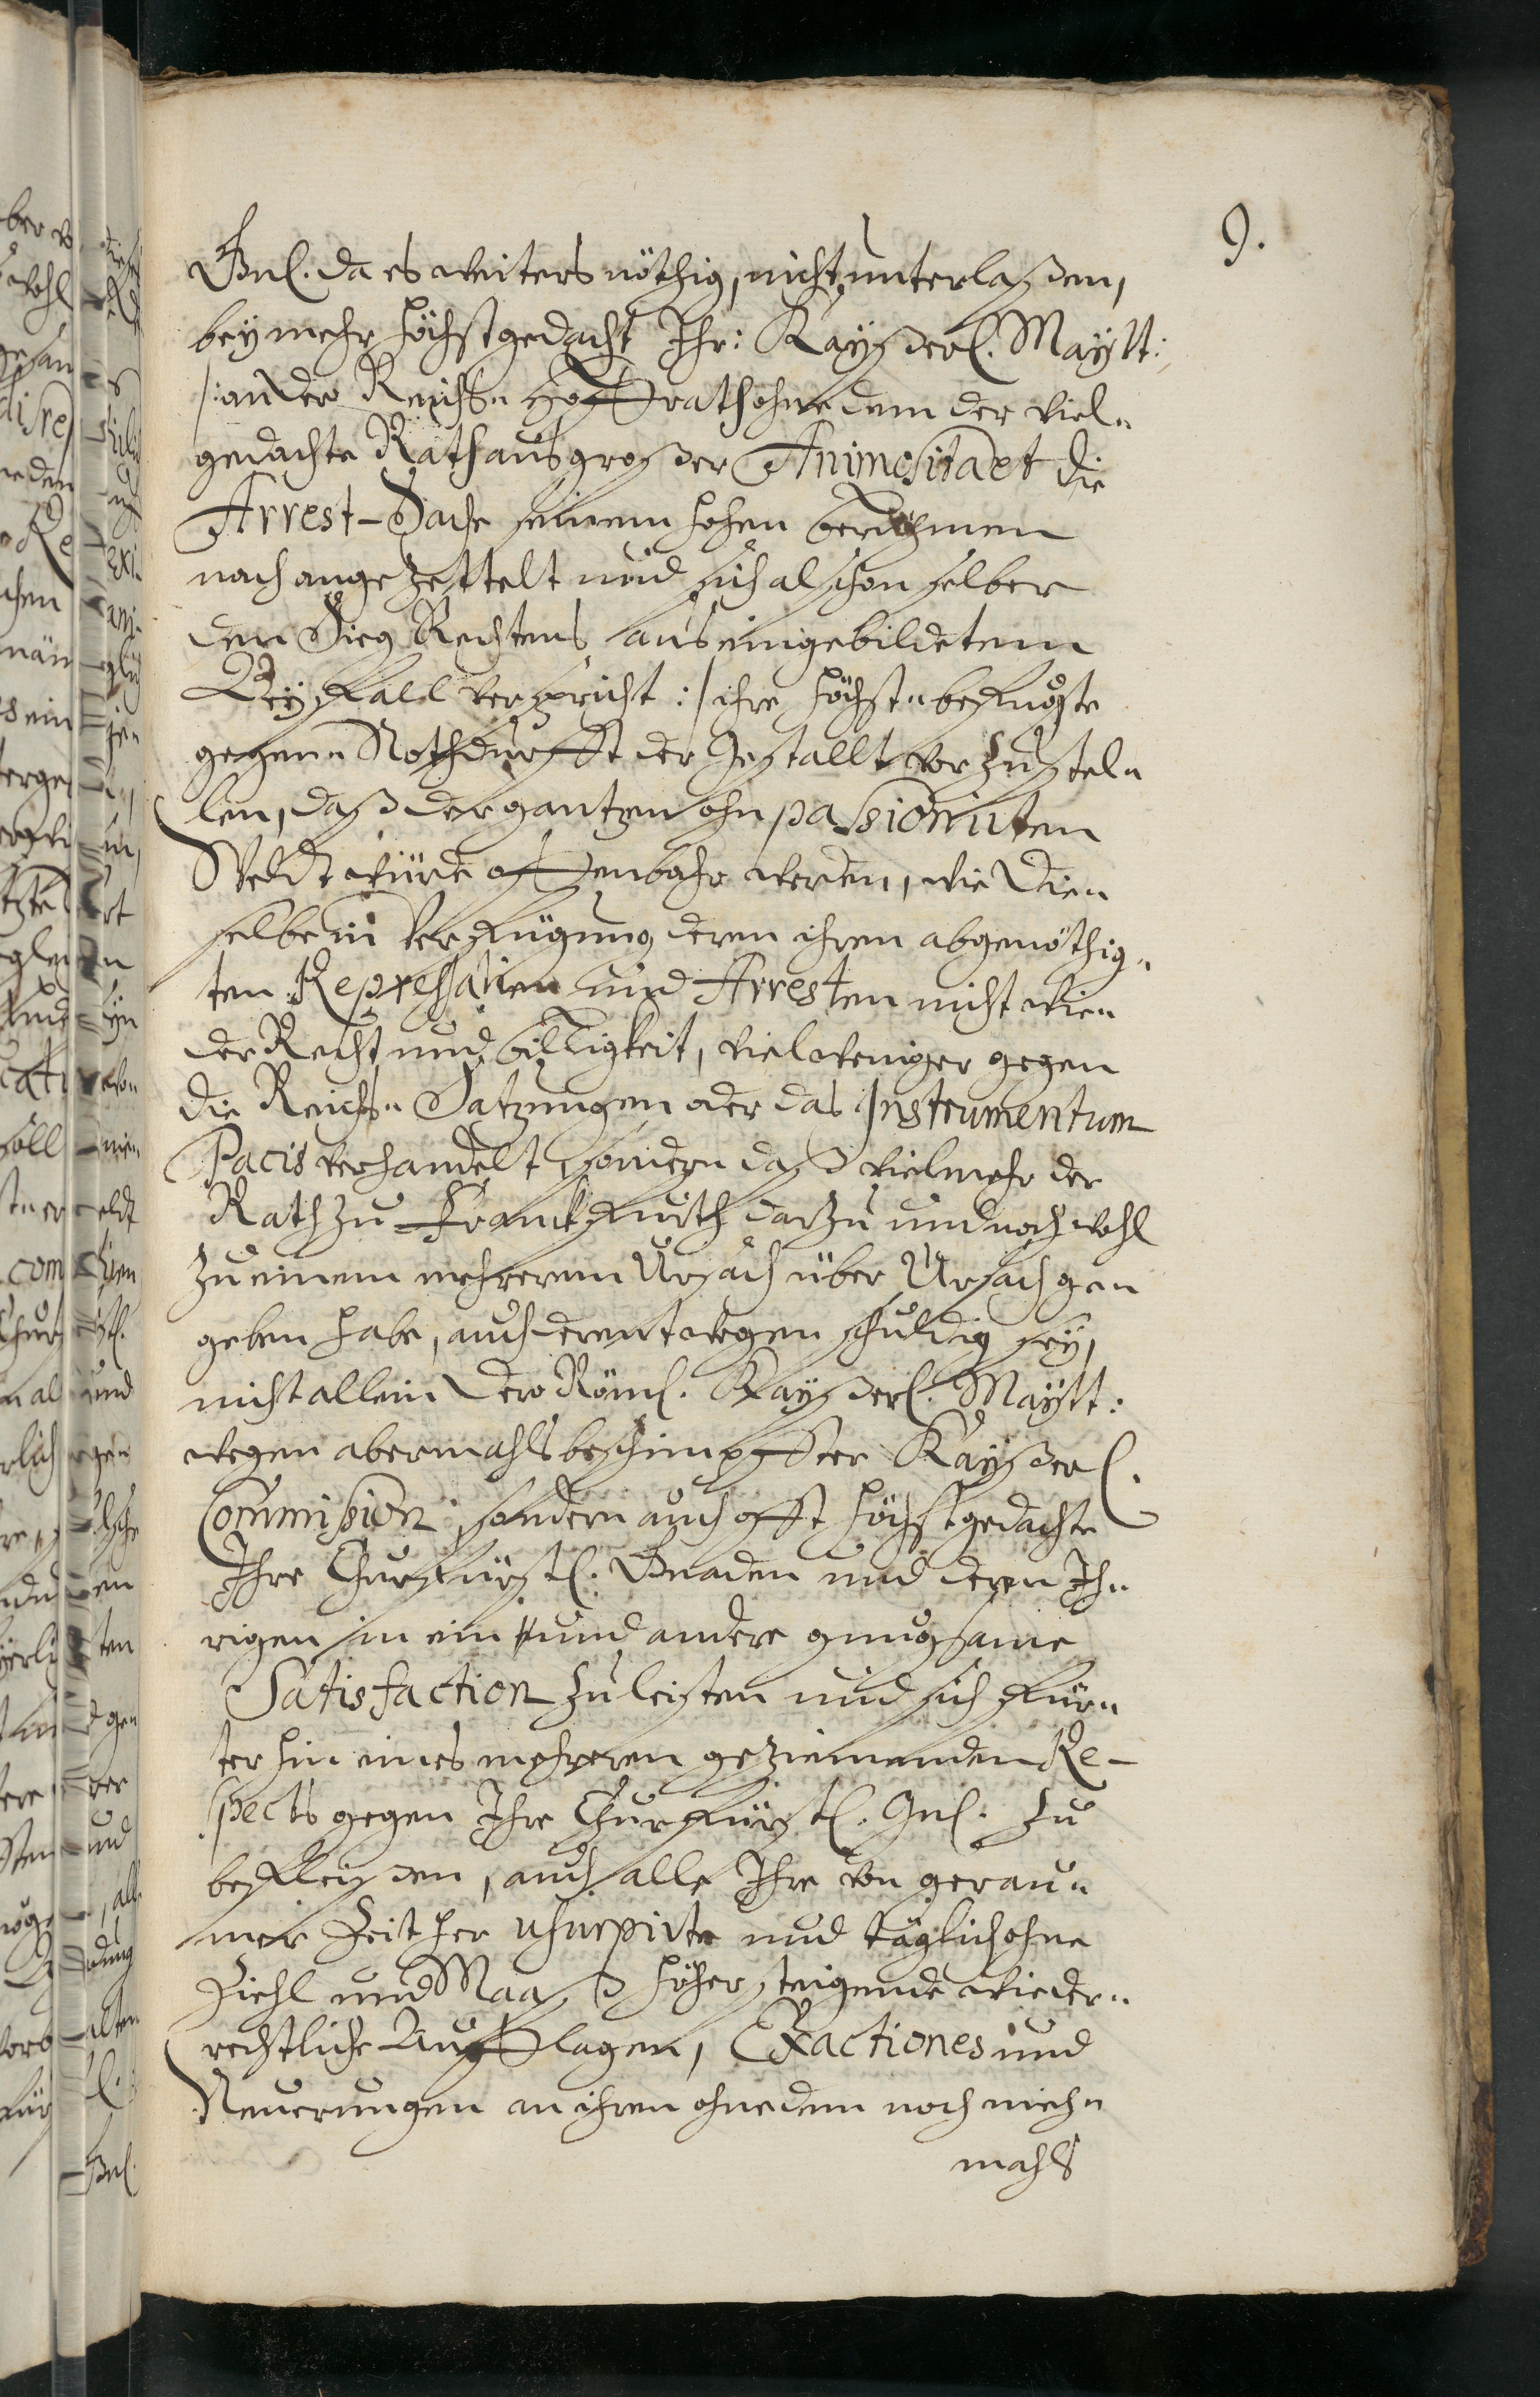 9.
Gnl. da es weiters nöthig, nicht unterlaßen,
bey mehr höchstgedacht Ihr: Kayßerl. Maytt:
/: an dero Reichs- Hoffrath ohne dem der viel-
gedachte Rath aus großer Animositaet die
Arrest-Sache seinem hohen berühmen
nach angezettelt und sich alschon selber
den Sieg Rechtens aus eingebildetem
Beyfall verspricht :/ ihre höchst-befugste
gegen-Nothdurfft der Gestallt vorzustel-
len, daß der gantzen ohnpassionirten
Weldt würde offenbahr werden, wie Die-
selbe in Verfügung deren ihren abgenöthig-
ten Repressalien und Arresten nicht wie-
der Recht und billigkeit, viel weniger gegen
die Reichs-Satzungen oder das Instrumentum
Pacis verhandelt, sondern daß vielmehr der
Rath zu Franckfurth darzu und noch wohl
zu einem mehrerem Ursach über Ursach ge-
geben habe, auch derentwegen schuldig sey,
nicht allein Dero Röml. Kayßerl. Maytt:
wegen abermahls beschimpffter Kayßerl.
Commißion, sondern auch offt höchstgedachte
Ihre Churfürstl. Gnaden und deren Ih-
rigen in ein und andere gnugsame
Satisfaction zu leisten und sich für-
terhin eines mehreren geziemenden Re-
spects gegen Ihre Churfürstl. Gnl. zu
befleißen, auch alle Ihre von gerau-
mer Zeit her usurpirte und täglich ohne
Ziehl und Maaß höher steigende wieder-
rechtliche Aufflagen, Exactiones und
Neuerungen an ihren ohne dem noch nieh-
mahls